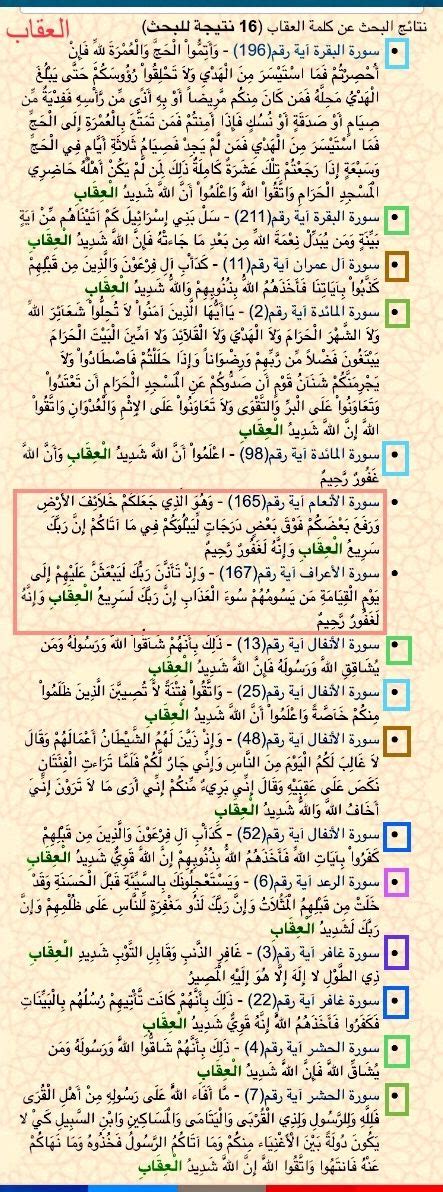 نتائج البحث عن كلمة العقاب (16 نتيجة للبحث) العقاب
سورة البقرة آية رقم(196) - وَأَتِمُّواْ الْحَجَّ وَالْعُمْرَةَ لِلّهِ فَإِنْ
أُحْصِرْتُمْ فَمَا اسْتَيْسَرَ مِنَ الْهَدْيِ وَلاَ تَحْلِقُواْ رُؤُوسَكُمْ حَتَّى يَبْلُغَ
الْهَدْيُ مَحِلَّهُ فَمَن كَانَ مِنكُم مَّرِيضاً أَوْ بِهِ أَذًى مِّن رَّأْسِهِ فَفِدْيَةٌ مِّن
صِيَامٍ أَوْ صَدَقَةٍ أَوْ نُسُكٍ فَإِذَا أَمِنتُمْ فَمَن تَمَتَّعَ بِالْعُمْرَةِ إِلَى الْحَجِّ
فَمَا اسْتَيْسَرَ مِنَ الْهَدْيِ فَمَن لَّمْ يَجِدْ فَصِيَامُ ثَلاثَةِ أَيَّامٍ فِي الْحَجِّ
وَسَبْعَةٍ إِذَا رَجَعْتُمْ تِلْكَ عَشَرَةٌ كَامِلَةٌ ذَلِكَ لِمَن لَّمْ يَكُنْ أَهْلُهُ حَاضِرِي
الْمَسْجِدِ الْحَرَامِ وَاتَّقُواْ اللّهَ وَاعْلَمُواْ أَنَّ اللّهَ شَدِيدُ الْعِقَابِ
سورة البقرة آية رقم(211) - سَلْ بَنِي إِسْرَائِيلَ كَمْ آتَيْنَاهُم مِّنْ آيَةٍ
بَيِّنَةٍ وَمَن يُبَدِّلْ نِعْمَةَ اللّهِ مِن بَعْدِ مَا جَاءتْهُ فَإِنَّ اللّهَ شَدِيدُ الْعِقَابِ
سورة آل عمران آية رقم(11) - كَدَأْبِ آلِ فِرْعَوْنَ وَالَّذِينَ مِن قَبْلِهِمْ
كَذَّبُواْ بِآيَاتِنَا فَأَخَذَهُمُ اللّهُ بِذُنُوبِهِمْ وَاللّهُ شَدِيدُ الْعِقَابِ
سورة المائدة آية رقم(2) - يَا أَيُّهَا الَّذِينَ آمَنُواْ لاَ تُحِلُّواْ شَعَآئِرَ اللّهِ
وَلاَ الشَّهْرَ الْحَرَامَ وَلاَ الْهَدْيَ وَلاَ الْقَلآئِدَ وَلا آمِّينَ الْبَيْتَ الْحَرَامَ
يَبْتَغُونَ فَضْلاً مِّن رَّبِّهِمْ وَرِضْوَاناً وَإِذَا حَلَلْتُمْ فَاصْطَادُواْ وَلاَ
يَجْرِمَنَّكُمْ شَنَآنُ قَوْمٍ أَن صَدُّوكُمْ عَنِ الْمَسْجِدِ الْحَرَامِ أَن تَعْتَدُواْ
وَتَعَاوَنُواْ عَلَى الْبرِّ وَالتَّقْوَى وَلاَ تَعَاوَنُواْ عَلَى الإِثْمِ وَالْعُدْوَانِ وَاتَّقُواْ
اللّهَ إِنَّ اللّهَ شَدِيدُ الْعِقَابِ
سورة المائدة آية رقم(98) - اعْلَمُواْ أَنَّ اللّهَ شَدِيدُ الْعِقَابِ وَأَنَّ اللّهَ
غَفُورٌ رَّحِيمٌ
سورة الأنعام آية رقم(165) - وَهُوَ الَّذِي جَعَلَكُمْ خَلاَئِفَ الأَرْضِ
وَرَفَعَ بَعْضَكُمْ فَوْقَ بَعْضٍ دَرَجَاتٍ لِّيَبْلُوَكُمْ فِي مَا آتَاكُمْ إِنَّ رَبَّكَ
سَرِيعُ الْعِقَابِ وَإِنَّهُ لَغَفُورٌ رَّحِيمٌ
سورة الأعراف آية رقم(167) - وَإِذْ تَأَذَّنَ رَبُّكَ لَيَبْعَثَنَّ عَلَيْهِمْ إِلَى
يَوْمِ الْقِيَامَةِ مَن يَسُومُهُمْ سُوءَ الْعَذَابِ إِنَّ رَبَّكَ لَسَرِيعُ الْعِقَابِ وَإِنَّهُ
لَغَفُورٌ رَّحِيمٌ
سورة الأنفال آية رقم(13) - ذَلِكَ بِأَنَّهُمْ شَآقُّواْ اللّهَ وَرَسُولَهُ وَمَن
يُشَاقِقِ اللّهَ وَرَسُولَهُ فَإِنَّ اللّهَ شَدِيدُ الْعِقَابِ
سورة الأنفال آية رقم(25) - وَاتَّقُواْ فِتْنَةً لاَّ تُصِيبَنَّ الَّذِينَ ظَلَمُواْ
مِنكُمْ خَاصَّةً وَاعْلَمُواْ أَنَّ اللّهَ شَدِيدُ الْعِقَابِ
سورة الأنفال آية رقم(48) - وَإِذْ زَيَّنَ لَهُمُ الشَّيْطَانُ أَعْمَالَهُمْ وَقَالَ
لاَ غَالِبَ لَكُمُ الْيَوْمَ مِنَ النَّاسِ وَإِنِّي جَارٌ لَّكُمْ فَلَمَّا تَرَاءتِ الْفِئَتَانِ
نَكَصَ عَلَى عَقِبَيْهِ وَقَالَ إِنِّي بَرِيءٌ مِّنكُمْ إِنِّي أَرَى مَا لاَ تَرَوْنَ إِنِّيَ
أَخَافُ اللّهَ وَاللّهُ شَدِيدُ الْعِقَابِ
سورة الأنفال آية رقم(52) - كَدَأْبِ آلِ فِرْعَوْنَ وَالَّذِينَ مِن قَبْلِهِمْ
كَفَرُواْ بِآيَاتِ اللّهِ فَأَخَذَهُمُ اللّهُ بِذُنُوبِهِمْ إِنَّ اللّهَ قَوِيٌّ شَدِيدُ الْعِقَابِ
سورة الرعد آية رقم(6) - وَيَسْتَعْجِلُونَكَ بِالسَّيِّئَةِ قَبْلَ الْحَسَنَةِ وَقَدْ
خَلَتْ مِن قَبْلِهِمُ الْمَثُلاَتُ وَإِنَّ رَبَّكَ لَذُو مَغْفِرَةٍ لِّلنَّاسِ عَلَى ظُلْمِهِمْ وَإِنَّ
رَبَّكَ لَشَدِيدُ الْعِقَابِ
سورة غافر آية رقم(3) - غَافِرِ الذَّنبِ وَقَابِلِ التَّوْبِ شَدِيدِ الْعِقَابِ
ذِي الطَّوْلِ لا إِلَهَ إِلَّا هُوَ إِلَيْهِ الْمَصِيرُ
سورة غافر آية رقم(22) - ذَلِكَ بِأَنَّهُمْ كَانَت تَّأْتِيهِمْ رُسُلُهُم بِالْبَيِّنَاتِ
فَكَفَرُوا فَأَخَذَهُمُ اللَّهُ إِنَّهُ قَوِيٌّ شَدِيدُ الْعِقَابِ
سورة الحشر آية رقم(4) - ذَلِكَ بِأَنَّهُمْ شَاقُّوا اللَّهَ وَرَسُولَهُ وَمَن
يُشَاقِّ اللَّهَ فَإِنَّ اللَّهَ شَدِيدُ الْعِقَابِ
سورة الحشر آية رقم(7) - مَّا أَفَاء اللَّهُ عَلَى رَسُولِهِ مِنْ أَهْلِ الْقُرَى
فَلِلَّهِ وَلِلرَّسُولِ وَلِذِي الْقُرْبَى وَالْيَتَامَى وَالْمَسَاكِينِ وَابْنِ السَّبِيلِ كَيْ لا
يَكُونَ دُولَةً بَيْنَ الْأَغْنِيَاء مِنكُمْ وَمَا آتَاكُمُ الرَّسُولُ فَخُذُوهُ وَمَا نَهَاكُمْ
عَنْهُ فَانتَهُوا وَاتَّقُوا اللَّهَ إِنَّ اللَّهَ شَدِيدُ الْعِقَابِ